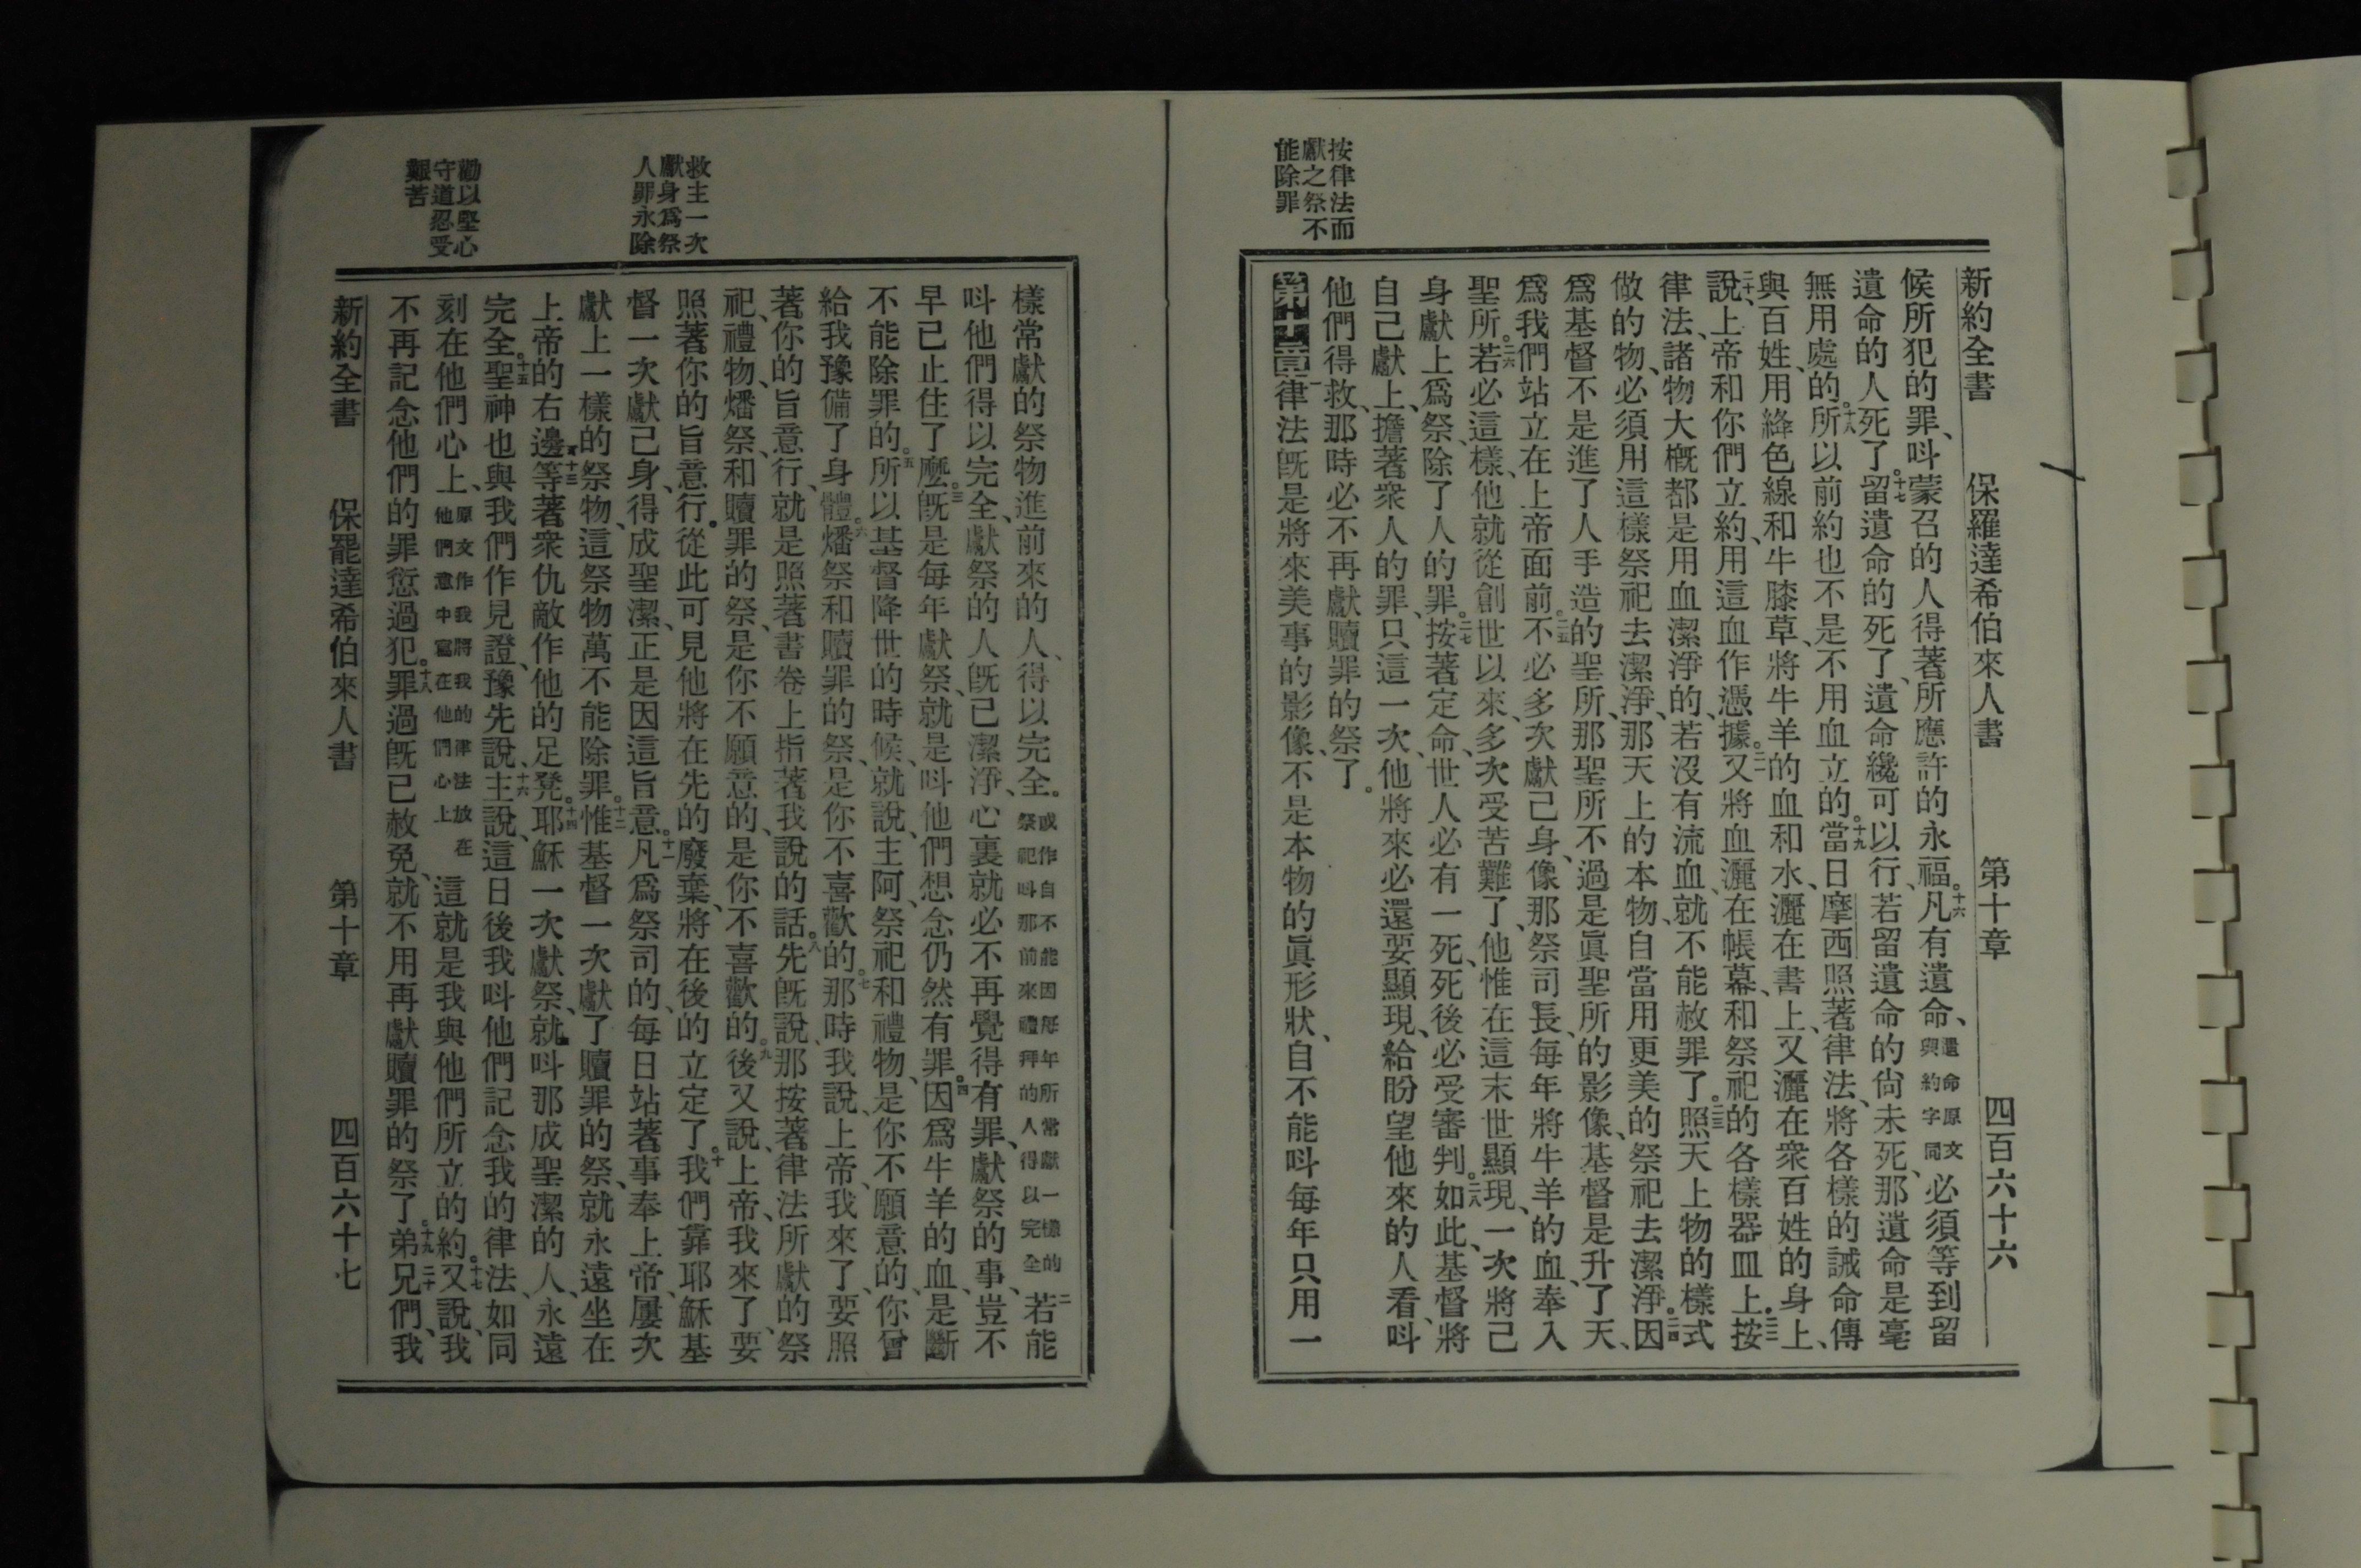 新約全書　保羅達希伯來人書　第十章　四百六十六
候所犯的罪、呌蒙召的人得著所應許的永福。十六凡有遺命、遺命原文與約字同必須等到留
遺命的人死了。十七留遺命的死了、遺命纔可以行、若留遺命的尙未死、那遺命是毫
無用處的。十八所以前約也不是不用血立的。十九當日摩西照著律法、將各樣的誡命傳
與百姓、用絳色線和牛膝草、將牛羊的血和水、灑在書上、又灑在衆百姓的身上、
二十說、上帝和你們立約、用這血作憑據。二一又將血灑在帳幕、和祭祀的各樣器皿上。二二按
律法、諸物大槪都是用血潔淨的、若沒有流血、就不能赦罪了。二三照天上物的樣式
做的物、必須用這樣祭祀去潔淨、那天上的本物、自當用更美的祭祀去潔淨。二四因
爲基督不是進了人手造的聖所、那聖所不過是眞聖所的影像、基督是升了天、
爲我們站立在上帝面前。二五不必多次獻己身、像那祭司長、每年將牛羊的血、奉入
聖所。二六若必這樣、他就從創世以來、多次受苦難了、他惟在這末世顯現、一次將己
身獻上爲祭、除了人的罪。二七按著定命、世人必有一死、死後必受審判。二八如此、基督將
自己獻上、擔著衆人的罪、只這一次、他將來必還要顯現、給盼望他來的人看、呌
他們得救、那時必不再獻贖罪的祭了。
按律法而
獻之祭不
能除罪
第十章一律法旣是將來美事的影像、不是本物的眞形狀、自不能呌每年只用一
樣常獻的祭物進前來的人、得以完全。或作自不能因每年所常獻一樣的祭祀呌那前來禮拜的人得以完全二若能
呌他們得以完全、獻祭的人旣已潔淨、心裏就必不再覺得有罪、獻祭的事、豈不
早已止住了麼。三旣是每年獻祭、就是呌他們想念仍然有罪。四因爲牛羊的血、是斷
不能除罪的。五所以基督降世的時候、就說、主阿、祭祀和禮物、是你不願意的、你曾
給我豫備了身體。六燔祭和贖罪的祭、是你不喜歡的。七那時我說、上帝、我來了、要照
著你的旨意行、就是照著書卷上指著我說的話。八先旣說、那按著律法所獻的祭
祀、禮物、燔祭、和贖罪的祭、是你不願意的、是你不喜歡的。九後又說、上帝、我來了、要
照著你的旨意行。從此可見他將在先的廢棄、將在後的立定了。十我們靠耶穌基
督一次獻己身、得成聖潔、正是因這旨意。十一凡爲祭司的、每日站著事奉上帝、屢次
獻上一樣的祭物、這祭物萬不能除罪。十二惟基督一次獻了贖罪的祭、就永遠坐在
上帝的右邊。十三等著衆仇敵作他的足凳。十四耶穌一次獻祭、就呌那成聖潔的人、永遠
完全。十五聖神也與我們作見證、豫先說、十六主說、這日後我呌他們記念我的律法、如同
刻在他們心上、原文作我將我的律法放在他們意中寫在他們心上這就是我與他們所立的約。十七又說、我
不再記念他們的罪愆過犯。十八罪過旣已赦免、就不用再獻贖罪的祭了。十九弟兄二十們、我
救主一次
獻身爲祭
人罪永除
勸以堅心
守道忍受
艱苦
新約全書　保羅達希伯來人書　第十章　四百六十七